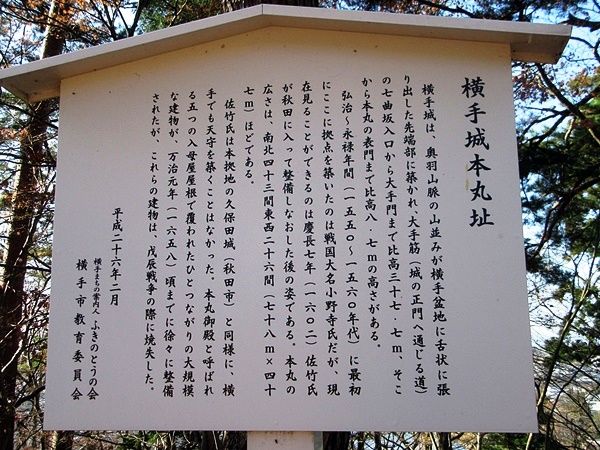 横手城本丸址
横手城は、奥羽山脈の山並みが横手盆地に舌状に張
り出した先端部に築かれ、大手筋（城の正門へ通じる道）
の七曲坂入口から大手門まで比高三十七・七m、そこ
から本丸の表門まで比高八・七mの高さがある。
弘治～永禄年間（一五五〇～一五六〇年代）に最初
にここに拠点を築いたのは戦国大名小野寺氏だが、現
在見ることができるのは慶長七年（一六〇二）佐竹氏
が秋田に入って整備しなおした後の姿である。本丸の
広さは、南北四十三間東西二十六間（七十八m×四十
七m）ほどである。
佐竹氏は本拠地の久保田城（秋田市）と同様に、横
手でも天守を築くことはなかった。本丸御殿と呼ばれ
る五つの入母屋屋根で覆われたひとつながりの大規模
な建物が、万治元年（一六五八）頃までに徐々に整備
されたが、これらの建物は、戊辰戦争の際に焼失した。
平成二十六年二月
横手まちの案内人 ふきのとうの会
横手市教育委員会